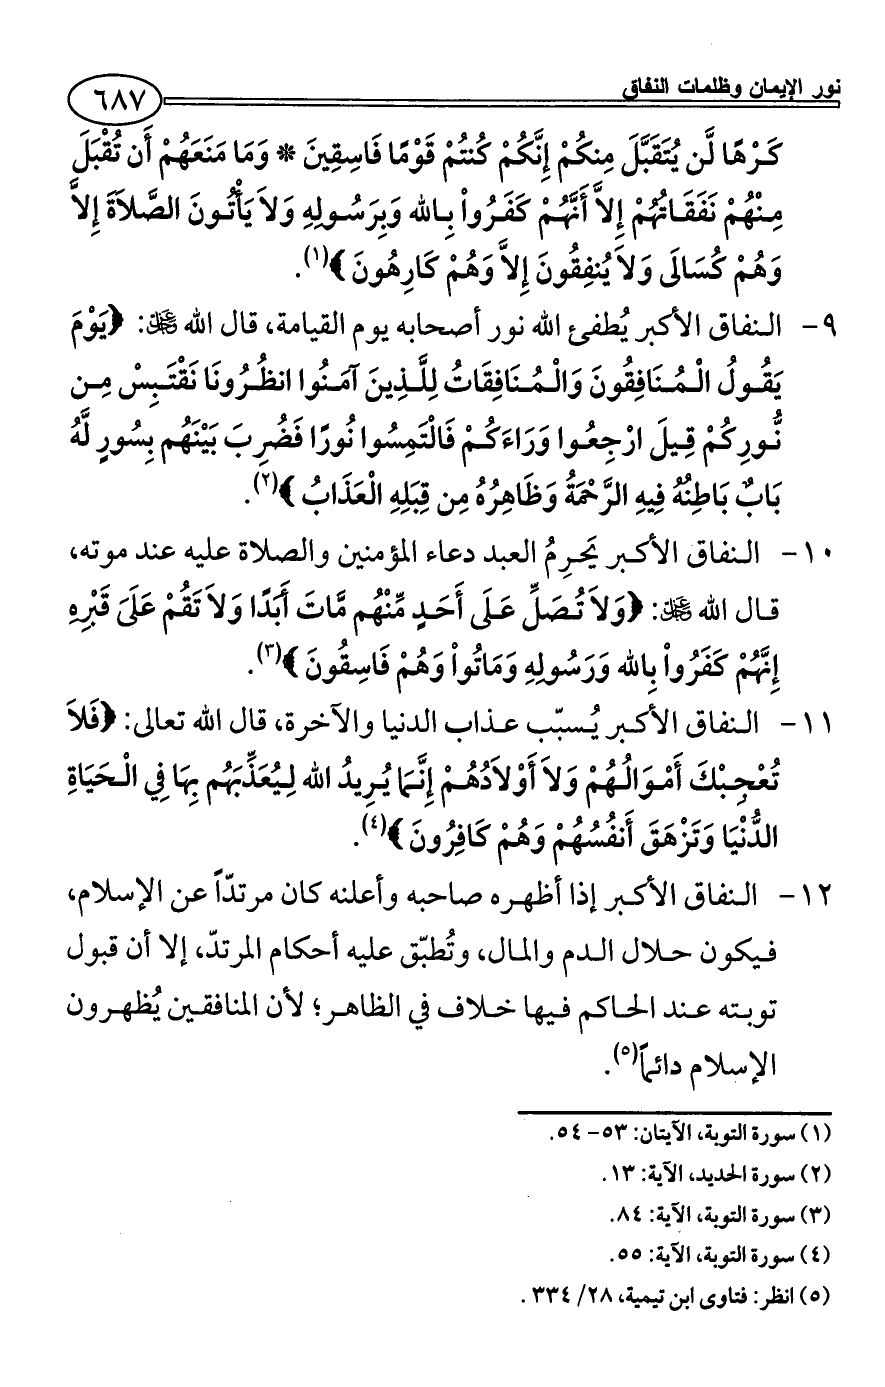 نور الإيمان وظلمات النفاق
٦٨٧
كَرْهًا لَّن يُتَقَبَّلَ مِنكُمْ إِنَّكُمْ كُنتُمْ قَوْمًا فَاسِقِينَ * وَمَا مَنَعَهُمْ أَن تُقْبَلَ
مِنْهُمْ نَفَقَاتُهُمْ إِلاَّ أَنَّهُمْ كَفَرُواْ بِالله وَبِرَسُولِهِ وَلاَ يَأْتُونَ الصَّلاَةَ إِلاَّ
وَهُمْ كُسَالَى وَلاَ يُنفِقُونَ إِلاَّ وَهُمْ كَارِهُونَ﴾(١).
٩- النفاق الأكبر يُطفئ الله نور أصحابه يوم القيامة، قال الله ﷻ: ﴿يَوْمَ
يَقُولُ الْمُنَافِقُونَ وَالْمُنَافِقَاتُ لِلَّذِينَ آمَنُوا انظُرُونَا نَقْتَبِسْ مِن
نُّورِكُمْ قِيلَ ارْجِعُوا وَرَاءَكُمْ فَالْتَمِسُوا نُورًا فَضُرِبَ بَيْنَهُم بِسُورٍ لَّهُ
بَابٌ بَاطِنُهُ فِيهِ الرَّحْمَةُ وَظَاهِرُهُ مِن قِبَلِهِ الْعَذَابُ﴾(٢).
١٠- النفاق الأكبر يَحرِمُ العبد دعاء المؤمنين والصلاة عليه عند موته،
قال الله ﷻ: ﴿وَلاَ تُصَلِّ عَلَى أَحَدٍ مِّنْهُم مَّاتَ أَبَدًا وَلاَ تَقُمْ عَلَىَ قَبْرِهِ
إِنَّهُمْ كَفَرُواْ بِالله وَرَسُولِهِ وَمَاتُواْ وَهُمْ فَاسِقُونَ﴾(٣).
١١- النفاق الأكبر يُسبّب عذاب الدنيا والآخرة، قال الله تعالى: ﴿فَلاَ
تُعْجِبْكَ أَمْوَالُهُمْ وَلاَ أَوْلاَدُهُمْ إِنَّمَا يُرِيدُ الله لِيُعَذِّبَهُم بِهَا فِي الْحَيَاةِ
الدُّنْيَا وَتَزْهَقَ أَنفُسُهُمْ وَهُمْ كَافِرُونَ﴾(٤).
١٢- النفاق الأكبر إذا أظهره صاحبه وأعلنه كان مرتدّاً عن الإسلام،
فيكون حلال الدم والمال، وتُطبّق عليه أحكام المرتدّ، إلا أن قبول
توبته عند الحاكم فيها خلاف في الظاهر؛ لأن المنافقين يُظهرون
الإسلام دائماً(٥).
(١) سورة التوبة، الآيتان: ٥٣- ٥٤.
(٢) سورة الحديد، الآية: ١٣.
(٣) سورة التوبة، الآية: ٨٤.
(٤) سورة التوبة، الآية: ٥٥.
(٥) انظر: فتاوى ابن تيمية، ٢٨/ ٣٣٤ .